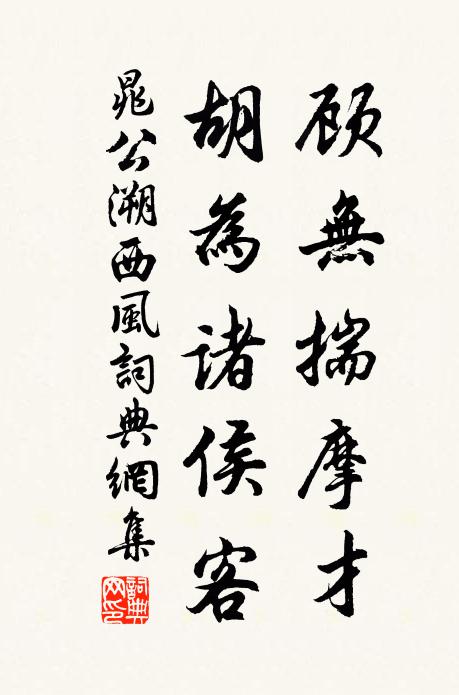 顾無揣摩才
胡為諸侯客
晁公溯西風詞典網集
詞典網印